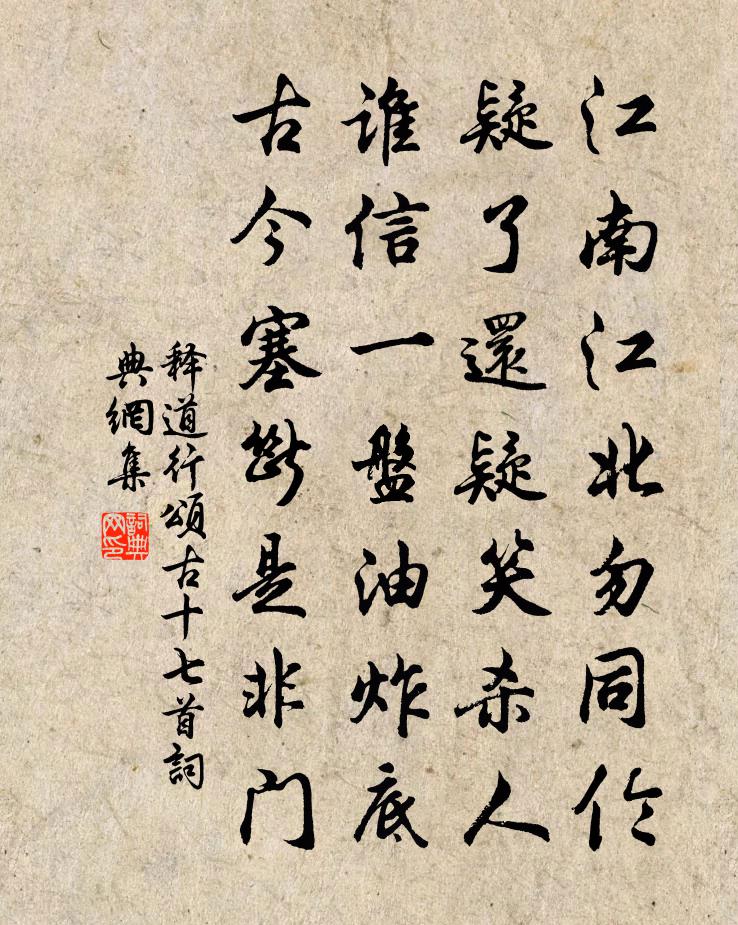 江南江北勿同伦
疑了還疑笑杀人
谁信一盤油炸底
古今塞斷是非门
释道行頌古十七首詞
典網集
詞典网印